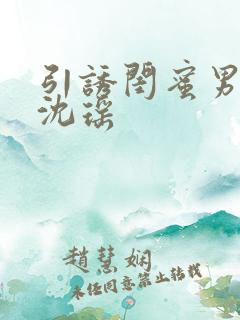 引誘閨蜜男
沈瑶
趙慧娴
未经同意禁止转载